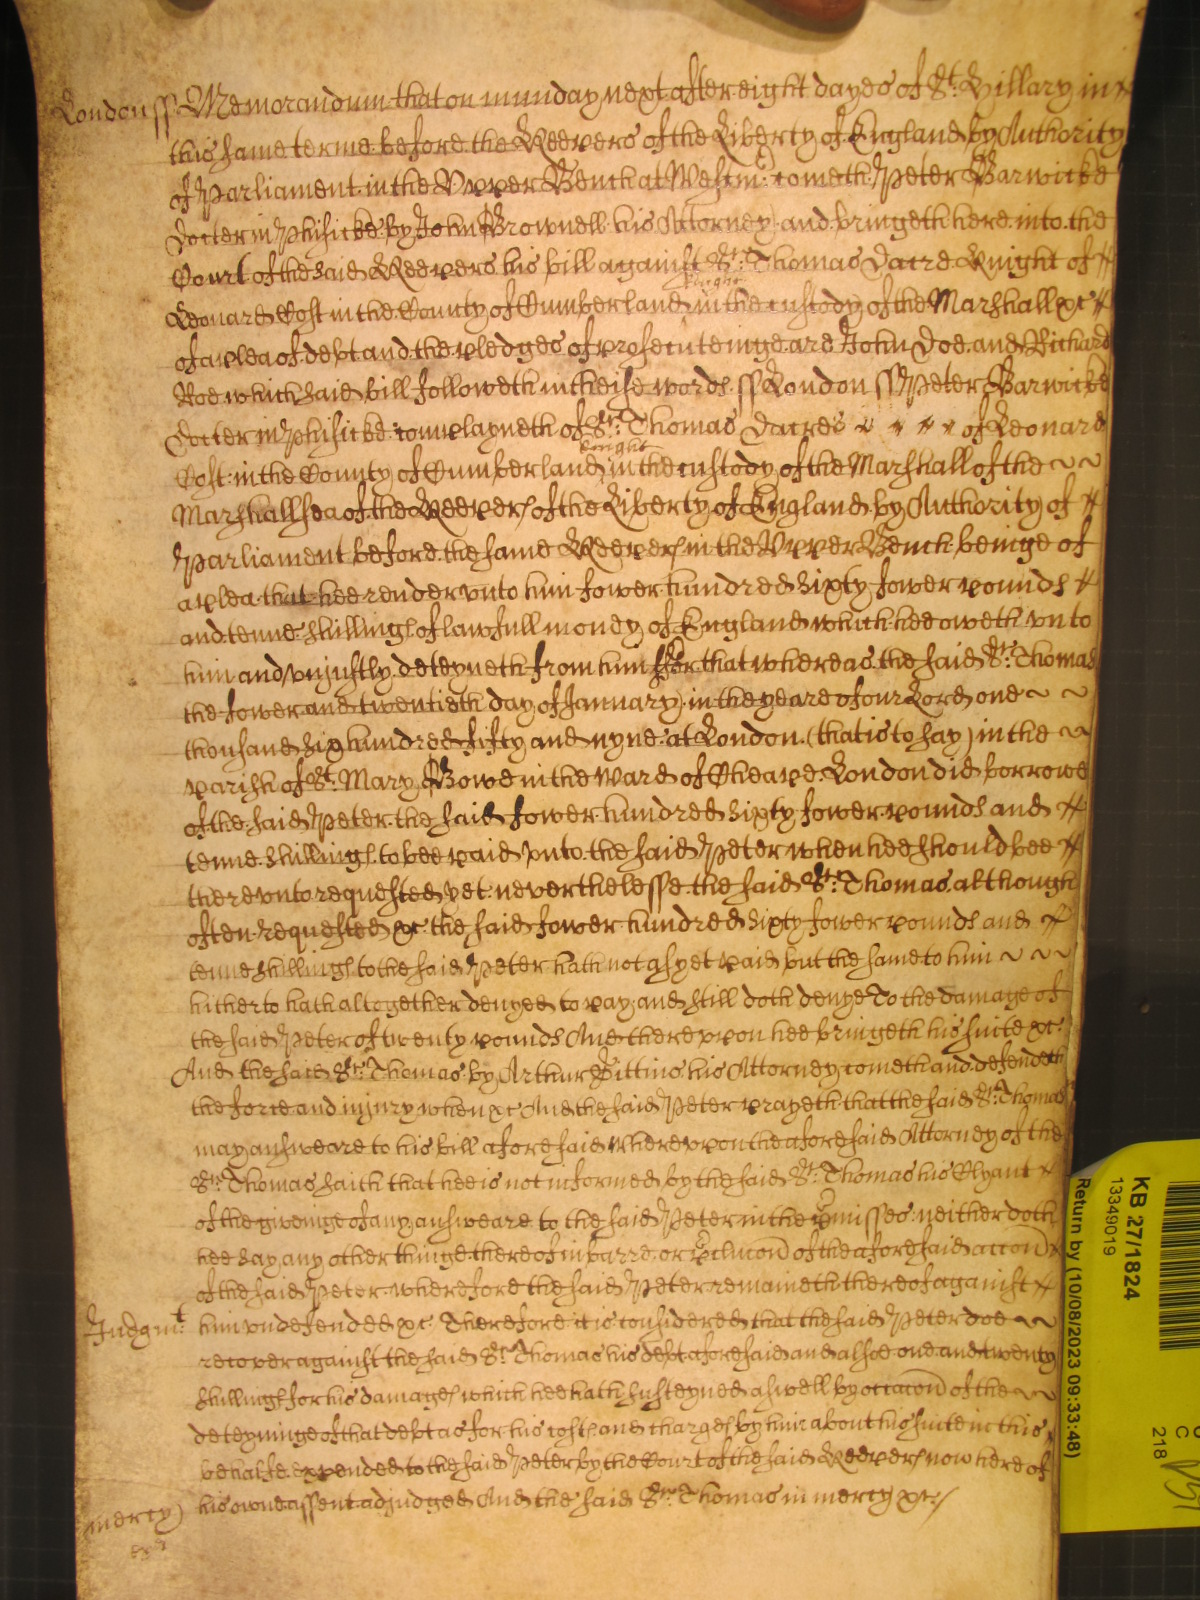 London ss Memorandum that on munday next after eight dayes of St. Hillary in
this same terme before the Keepers of the Liberty of England by Authority
of Parliament in the Upper Bench at Westm: cometh Peter Barwicke
Docter in Phisicke by John Brownell his Attorney and bringeth here into the
Court of the said Keepers his bill against Sr. Thomas Dacre Knight of
Knight
Leonard Cost in the County of Cumberland in the custody of the Marshall &c
of a plea of debt and the pledges of prosecuteinge are John Doe and Richard
Roe which said bill followeth in theise words ss London ss Peter Barwicke
Docter in Phisicke complayneth of Sr. Thomas Dacre of Leonard
Knight
Cost in the County of Cumberland in the custody of the Marshall of the
Marshallsea of the Keepers of the Liberty of England by Authority of
Parliament before the same Keepers in the Upper Bench beinge of
a plea that hee render unto him fower hundred sixty fower pounds
and tenne shillings of lawfull money of England which hee oweth unto
him and unjustly deteyneth from him for that whereas the said Sr. Thomas
the fower and twentieth day of January in the yeare of our Lord one
thousand six hundred fifty and nyne at London (that is to say) in the
parish of St. Mary Bowe in the Ward of Cheape London did borrowe
of the said Peter the said fower hundred sixty fower pounds and
tenne shillings to bee paid unto the said Peter when hee should bee
thereunto requested yet neverthelesse the said Sr. Thomas although
often requested &c the said fower hundred sixty fower pounds and
tenne shillings to the said Peter hath not as yet paid but the same to him
hitherto hath altogether denyed to pay and still doth denye To the damage of
the said Peter of twenty pounds And thereupon hee bringeth his suite &c.
And the said Sr. Thomas by Arthur Gittins his Attorney cometh and defendeth
the force and injury when &c And the said Peter prayeth that the said Sr. Thomas
may answeare to his bill aforesaid whereupon the aforesaid Attorney of the
Sr. Thomas saith that hee is not informed by the said Sr. Thomas his Clyant
of the giveinge of any answeare to the said Peter in the pmisses neither doth
hee say any other thinge thereof in barre or pclucon of the aforesaid accon
of the said Peter wherefore the said Peter remaineth thereof against
Judgmt. him undefended &c Therefore it is considered that the said Peter doe
recover against the said Sr. Thomas his debt aforesaid and alsoe one and twenty
shillings for his damages which hee hath susteyned aswell by occacon of the
deteyninge of that debt as for his costs and charges by him about his suite in this
behalfe expended to the said Peter by the Court of the said Keepers now here of
his owne assent adjudged And the said Sr. Thomas in mercy &c
mercy
KB 27/1824
13349019
Return by (10/08/2023 09:33:48)
C
218